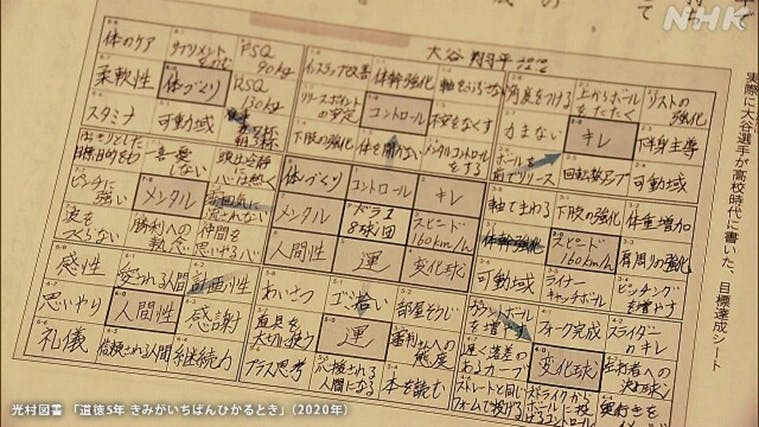 NHK
大谷翔平
体のケア
サプリメントをのむ
FSQ
90kg
インステップ改善
体幹強化
軸をぶらさない
角度をつける
上からボールをたたく
リストの強化
柔軟性
体づくり
RSQ
130kg
リリースポイントの安定
コントロール
不安をなくす
力まない
キレ
下半身主導
スタミナ
可動域
朝3杯
下肢の強化
体を開かない
メンタルコントロールをする
ボールを前でリリース
回転数アップ
可動域
はっきりとした目標目的をもつ
一喜一憂しない
頭は冷静に心は熱く
体づくり
コントロール
キレ
軸でまわる
下肢の強化
体重増加
ピンチに強い
メンタル
雰囲気に流されない
メンタル
ドラ1
8球団
スピード
160km/h
体幹強化
スピード
160km/h
肩周りの強化
波をつくらない
勝利への執念
仲間を思いやる心
人間性
運
変化球
可動域
ライナーキャッチボール
ピッチングを増やす
感性
愛される人間
計画性
あいさつ
ゴミ拾い
部屋そうじ
カウントボールを増やす
フォーク完成
スライダーのキレ
思いやり
人間性
感謝
道具を大切に使う
運
審判さんへの態度
遅く落差のあるカーブ
変化球
左打者への決め球
礼儀
信頼される人間
継続力
プラス思考
応援される人間になる
本を読む
ストレートと同じフォームで投げる
ストライクからボールに投げるコントロール
奥行きを
実際に大谷選手が高校時代に書いた、目標達成シート
光村図書 「道徳5年 きみがいちばんひかるとき」（2020年）